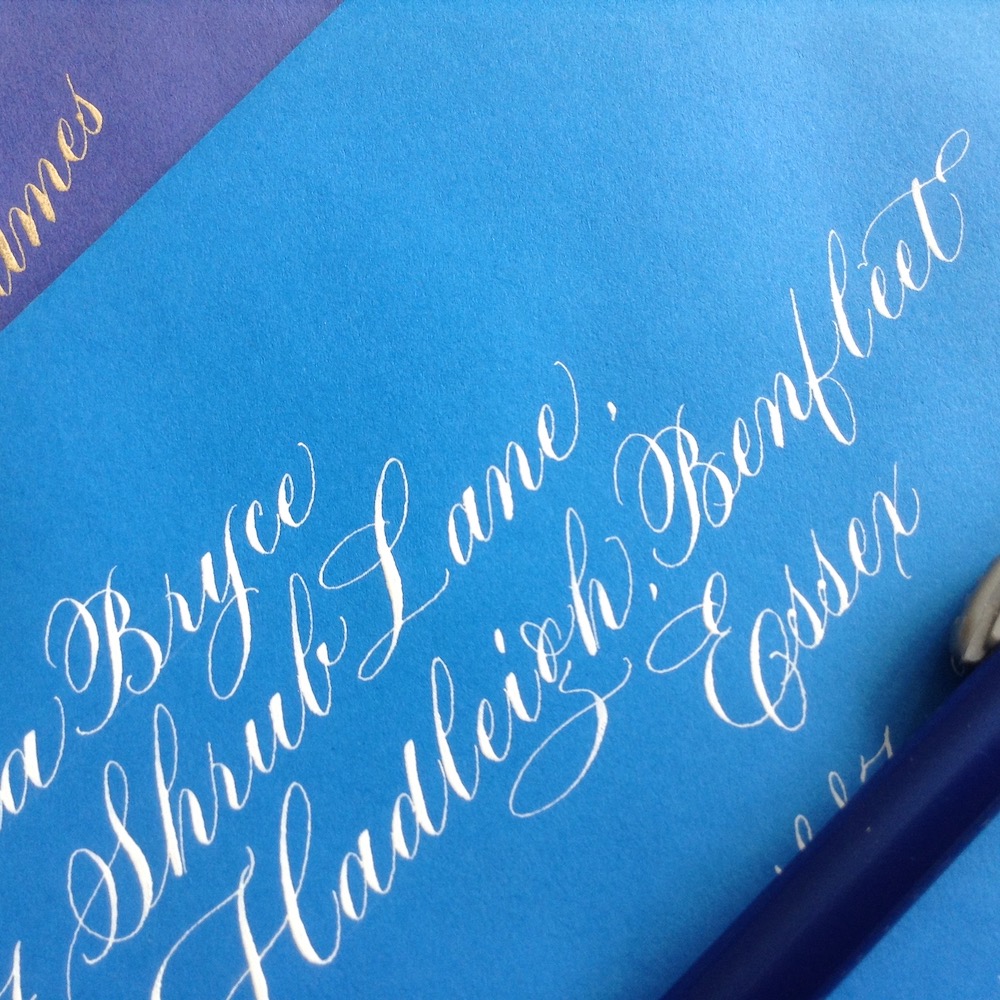 ames
a Bryce
Shrub Lane,
Hadleigh. Benfleet
Essex